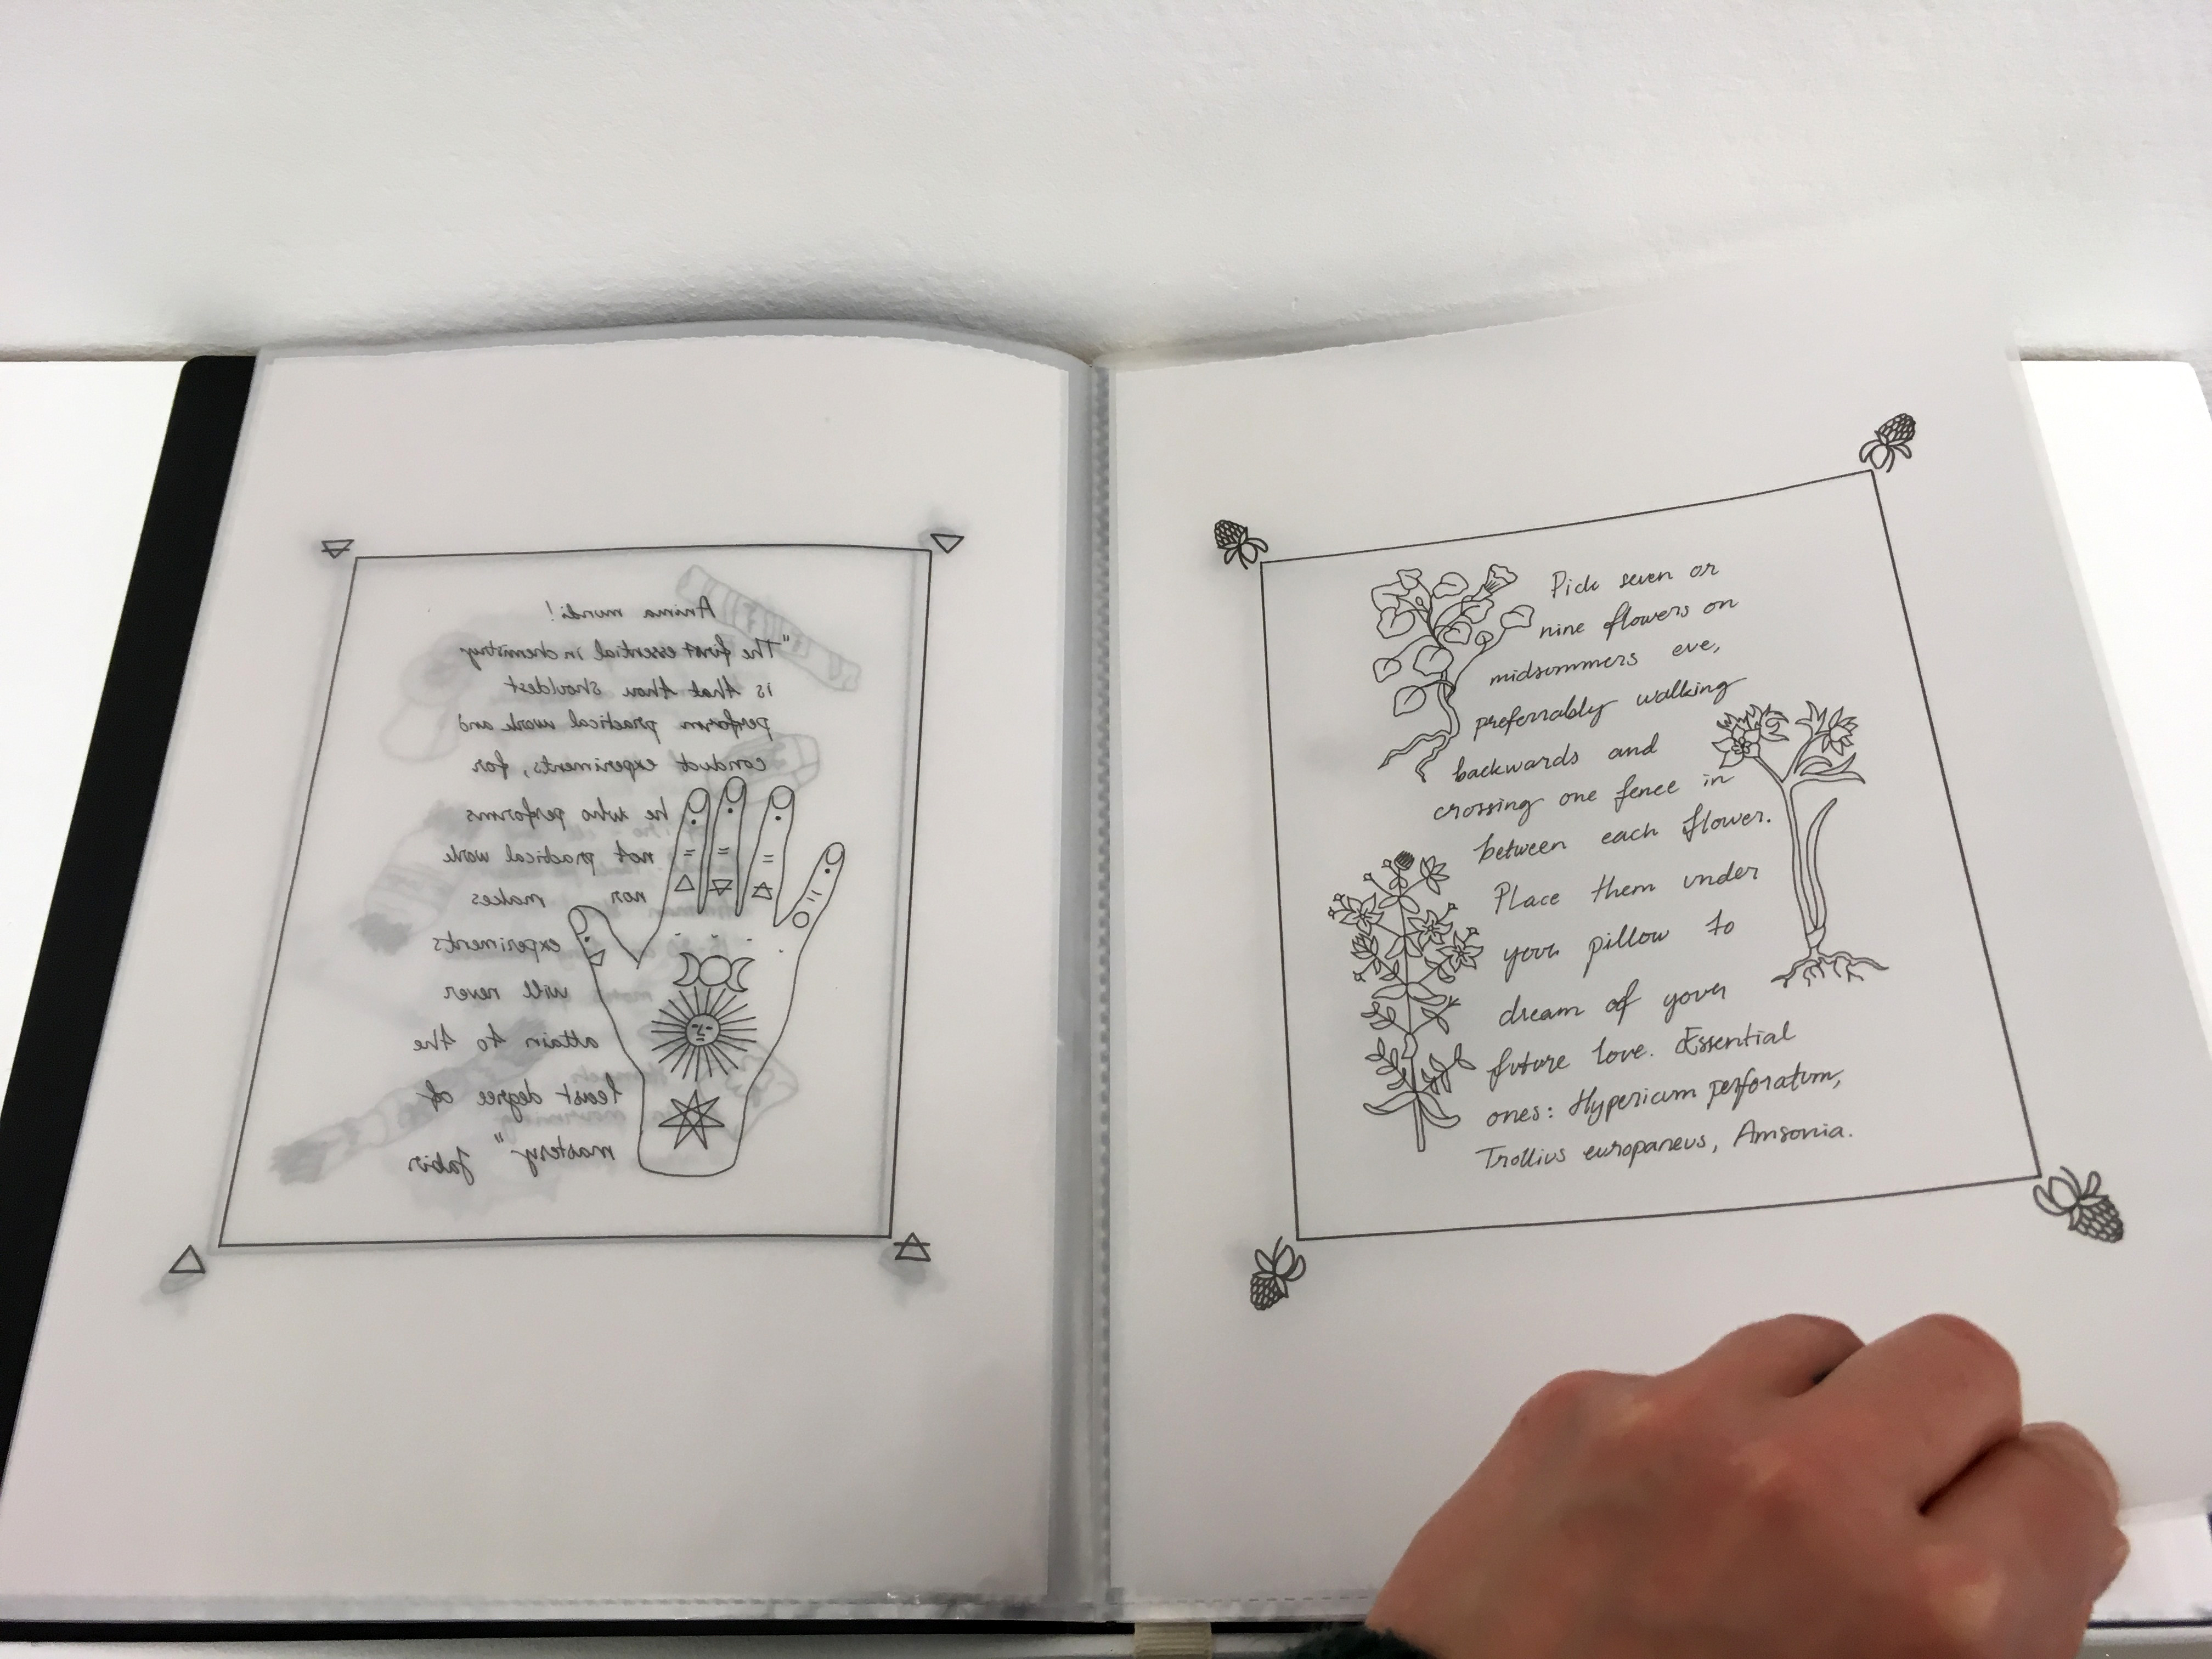 Anima mundi!
"The first essential in chemistry
is that thou shouldest
perform practical work and
conduct experiments, for
he who performs
not practical work
nor makes
experiments
will never
attain to the
least degree of
mastery" Jabir
Pick seven or
nine flowers on
midsummers eve,
preferrably walking
backwards and
crossing one fence in
between each flower.
Place them under
your pillow to
dream of your
future love. Essential
ones: Hypericum perforatum,
Trollius europaneus, Amsonia.